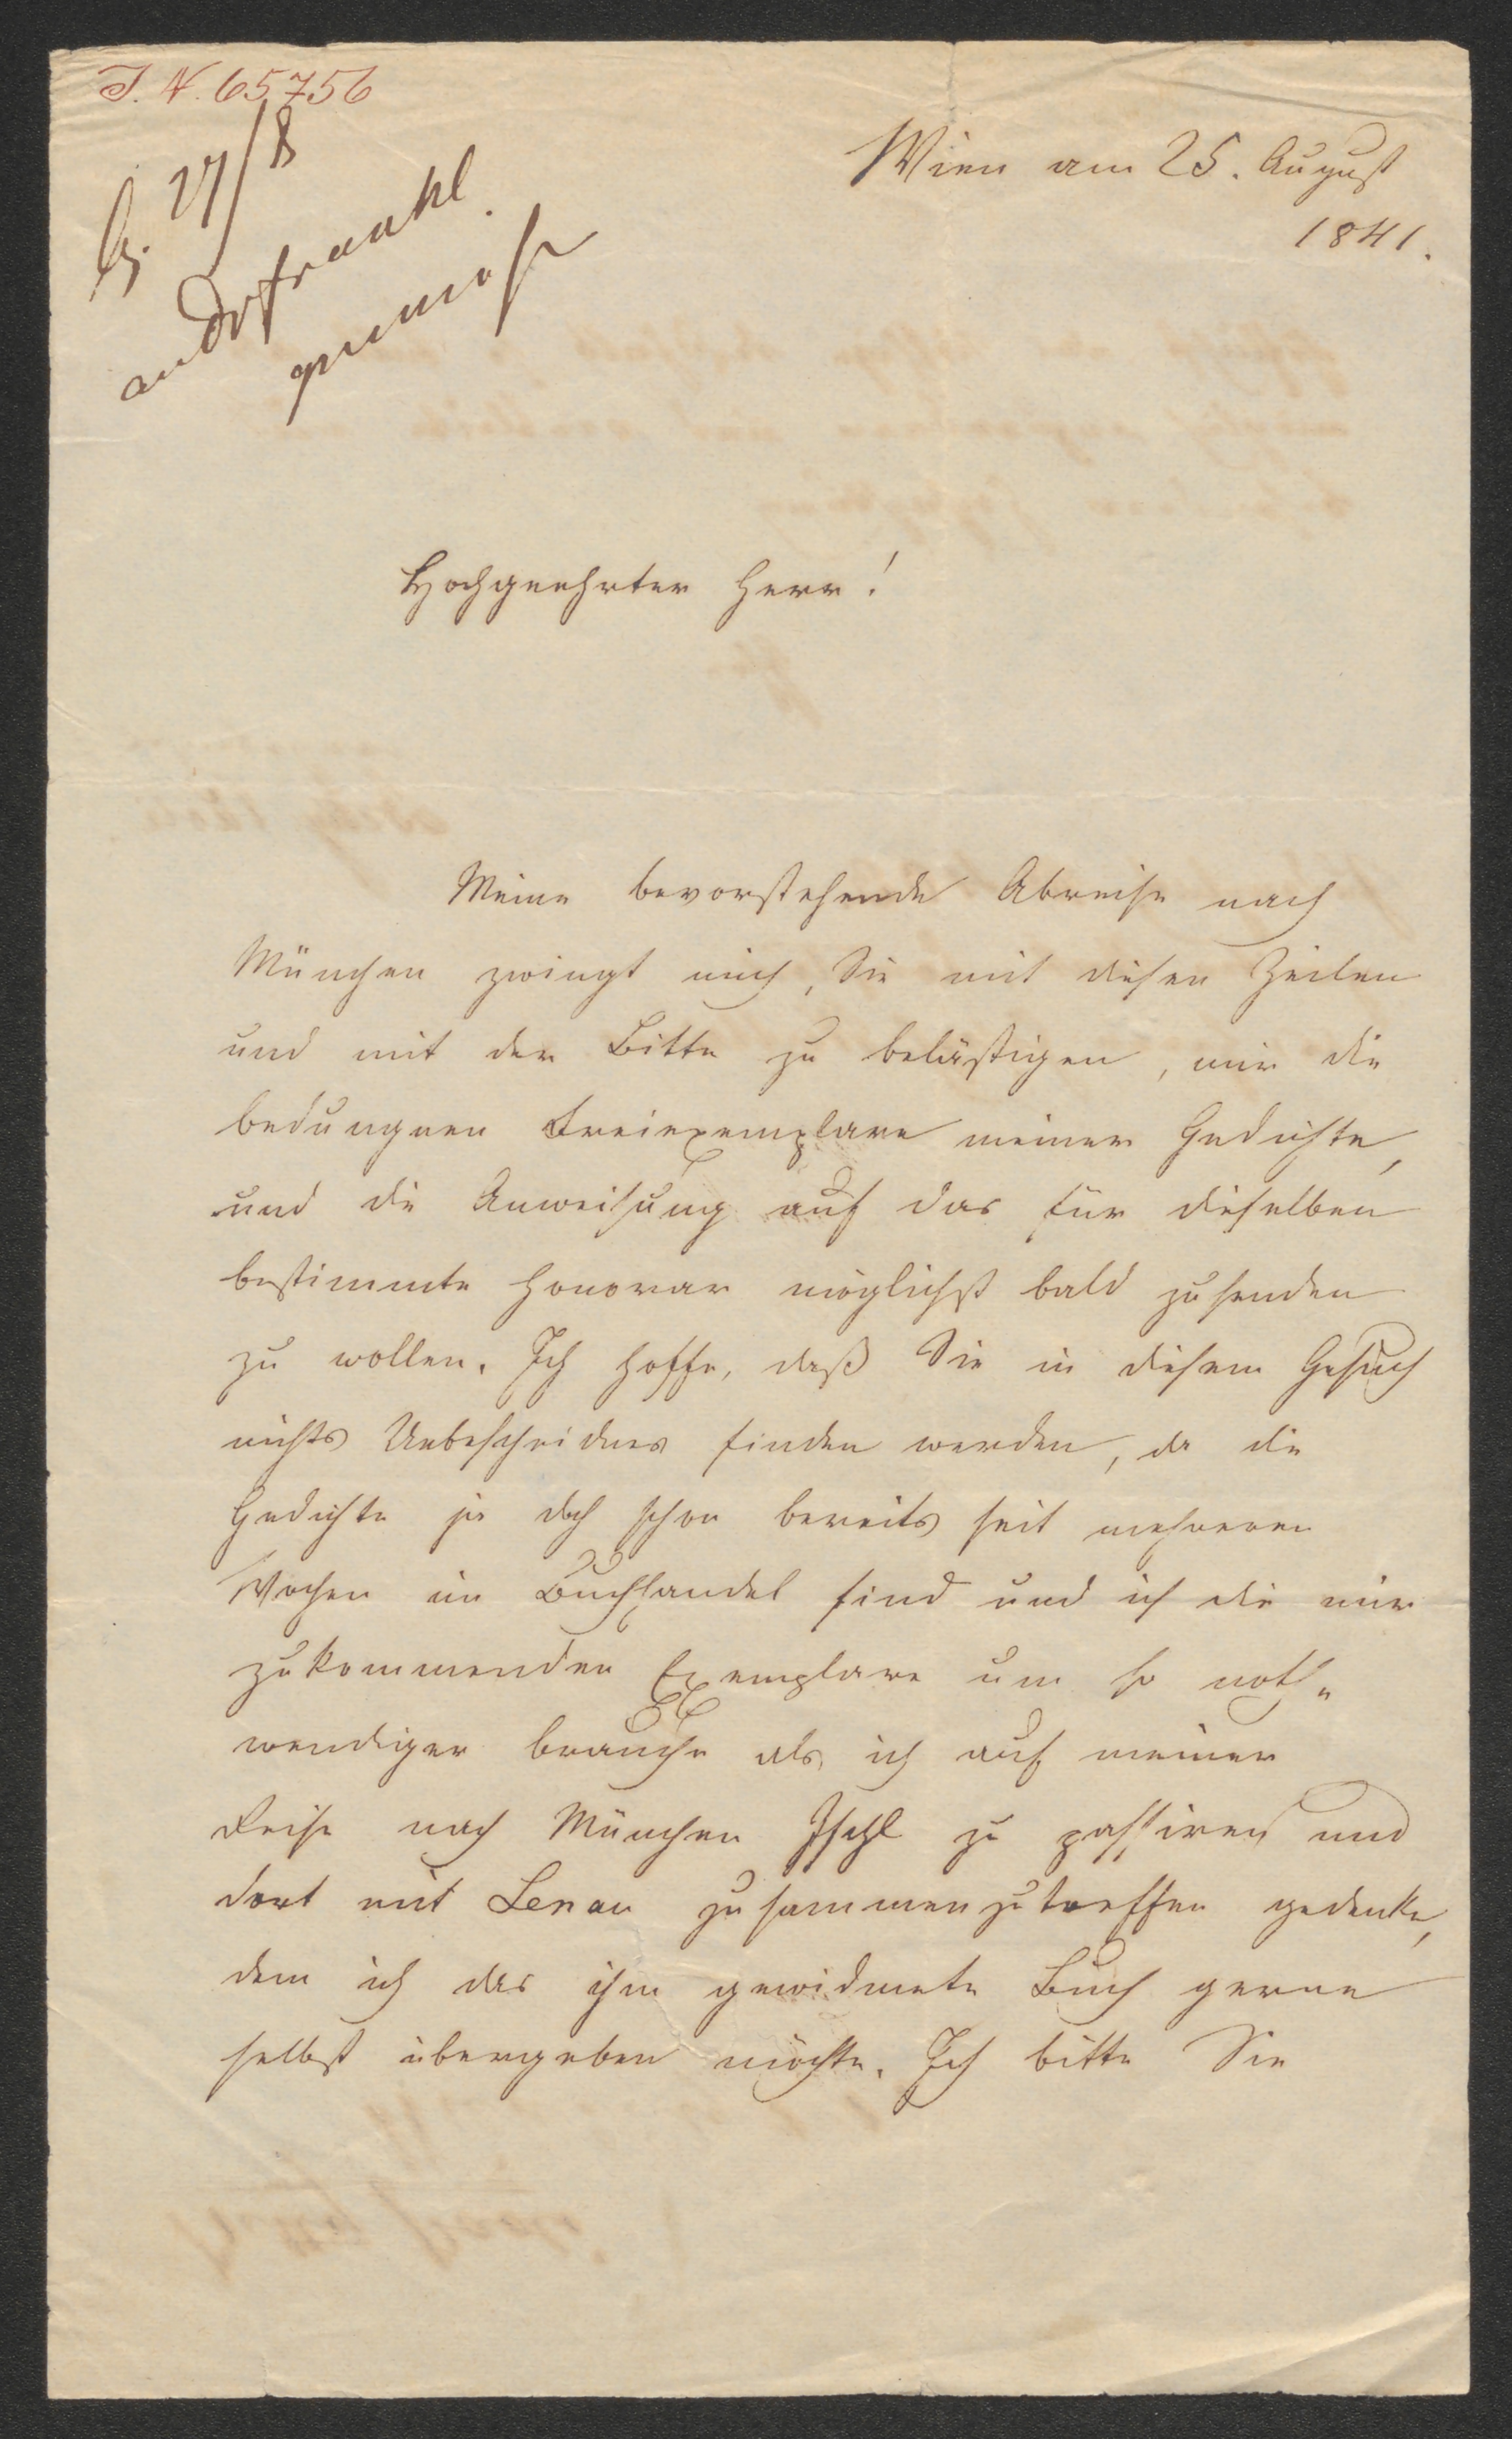 I. N. 65756
27/8
Wien am 25. August
1841.
Hochgeehrter Herr!
Meine bevorstehende Abreise nach
München zwingt mich, Sie mit diesen Zeilen
und mit der Bitte zu belästigen, mir die
bedungnen Freiexemplare meiner Gedichte,
und die Anweisung auf das für dieselben
bestimmte Honorar möglichst bald zusenden
zu wollen. Ich hoffe, daß Sie in diesem Gesuch
nichts Unbescheidnes finden werden, da die
Gedichte ja doch schon bereits seit mehreren
Wochen im Buchhandel sind und ich die mir
zukommenden Exemplare um so noth-
wendiger brauche als ich auf meiner
Reise nach München Ischl zu passiren und
dort mit Lenau zusammenzutreffen gedenke,
dem ich das ihm gewidmete Buch gerne
selbst übergeben möchte. Ich bitte Sie